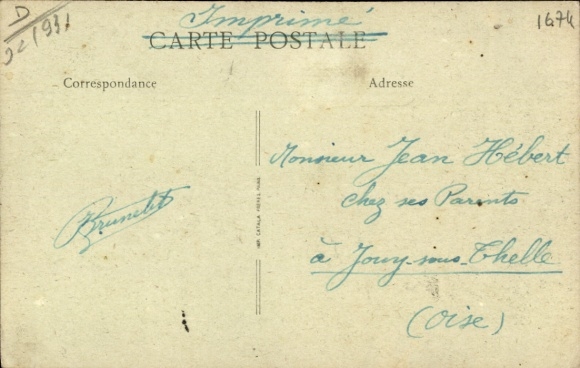 Imprimé
CARTE POSTALE
1674
D
Correspondance
Adresse
Monsieur Jean Hébert
chez ses Parents
à Jouy-sous-Thelle
(Oise)
Brunelet
IMP. CATALA FRÈRES, PARIS